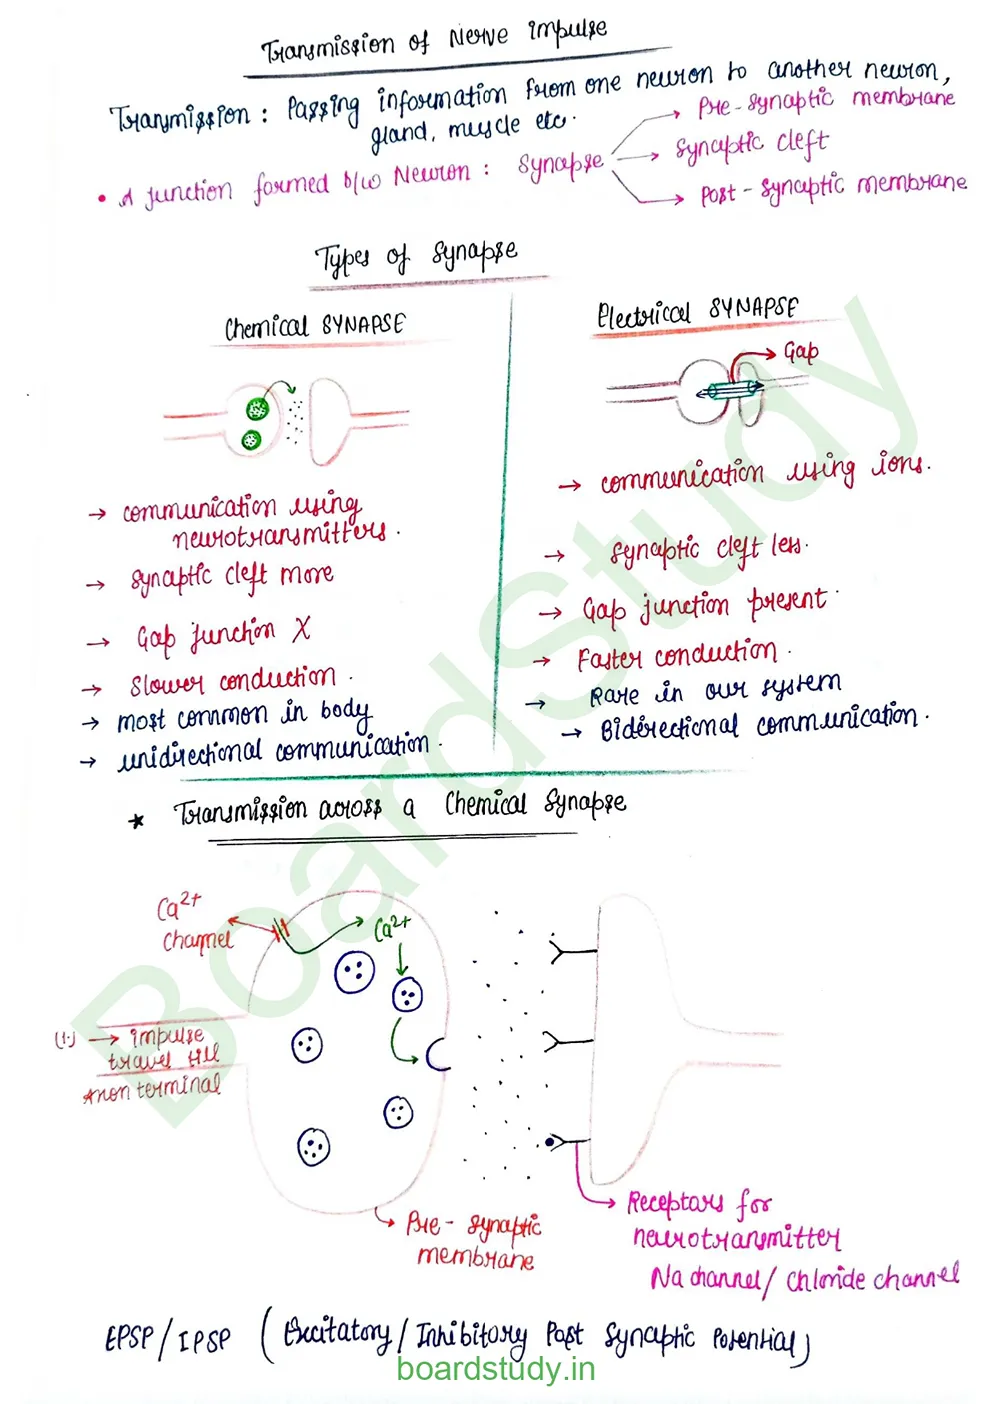 Transmission of Nerve impulse
Transmission : Passing information from one neuron to another neuron,
gland, muscle etc.
• A junction formed b/w Neuron : Synapse
Pre-synaptic membrane
Synaptic cleft
Post-synaptic membrane
Types of Synapse
Chemical SYNAPSE
→ communication using
neurotransmitters.
→ synaptic cleft more
→ Gap junction X
→ Slower conduction.
→ most common in body
→ unidirectional communication.
Electrical SYNAPSE
Gap
→ communication using ions.
→ synaptic cleft less.
→ Gap junction present.
→ Faster conduction.
→ Rare in our system
→ Bidirectional communication.
* Transmission across a Chemical Synapse
Ca2+
Channel
Ca2+
(1.) → impulse
travel till
axon terminal
Pre-synaptic
membrane
Receptors for
neurotransmitter
Na channel/ chloride channel
EPSP/IPSP (Excitatory/Inhibitory Post Synaptic Potential)
boardstudy.in
BoardStudy